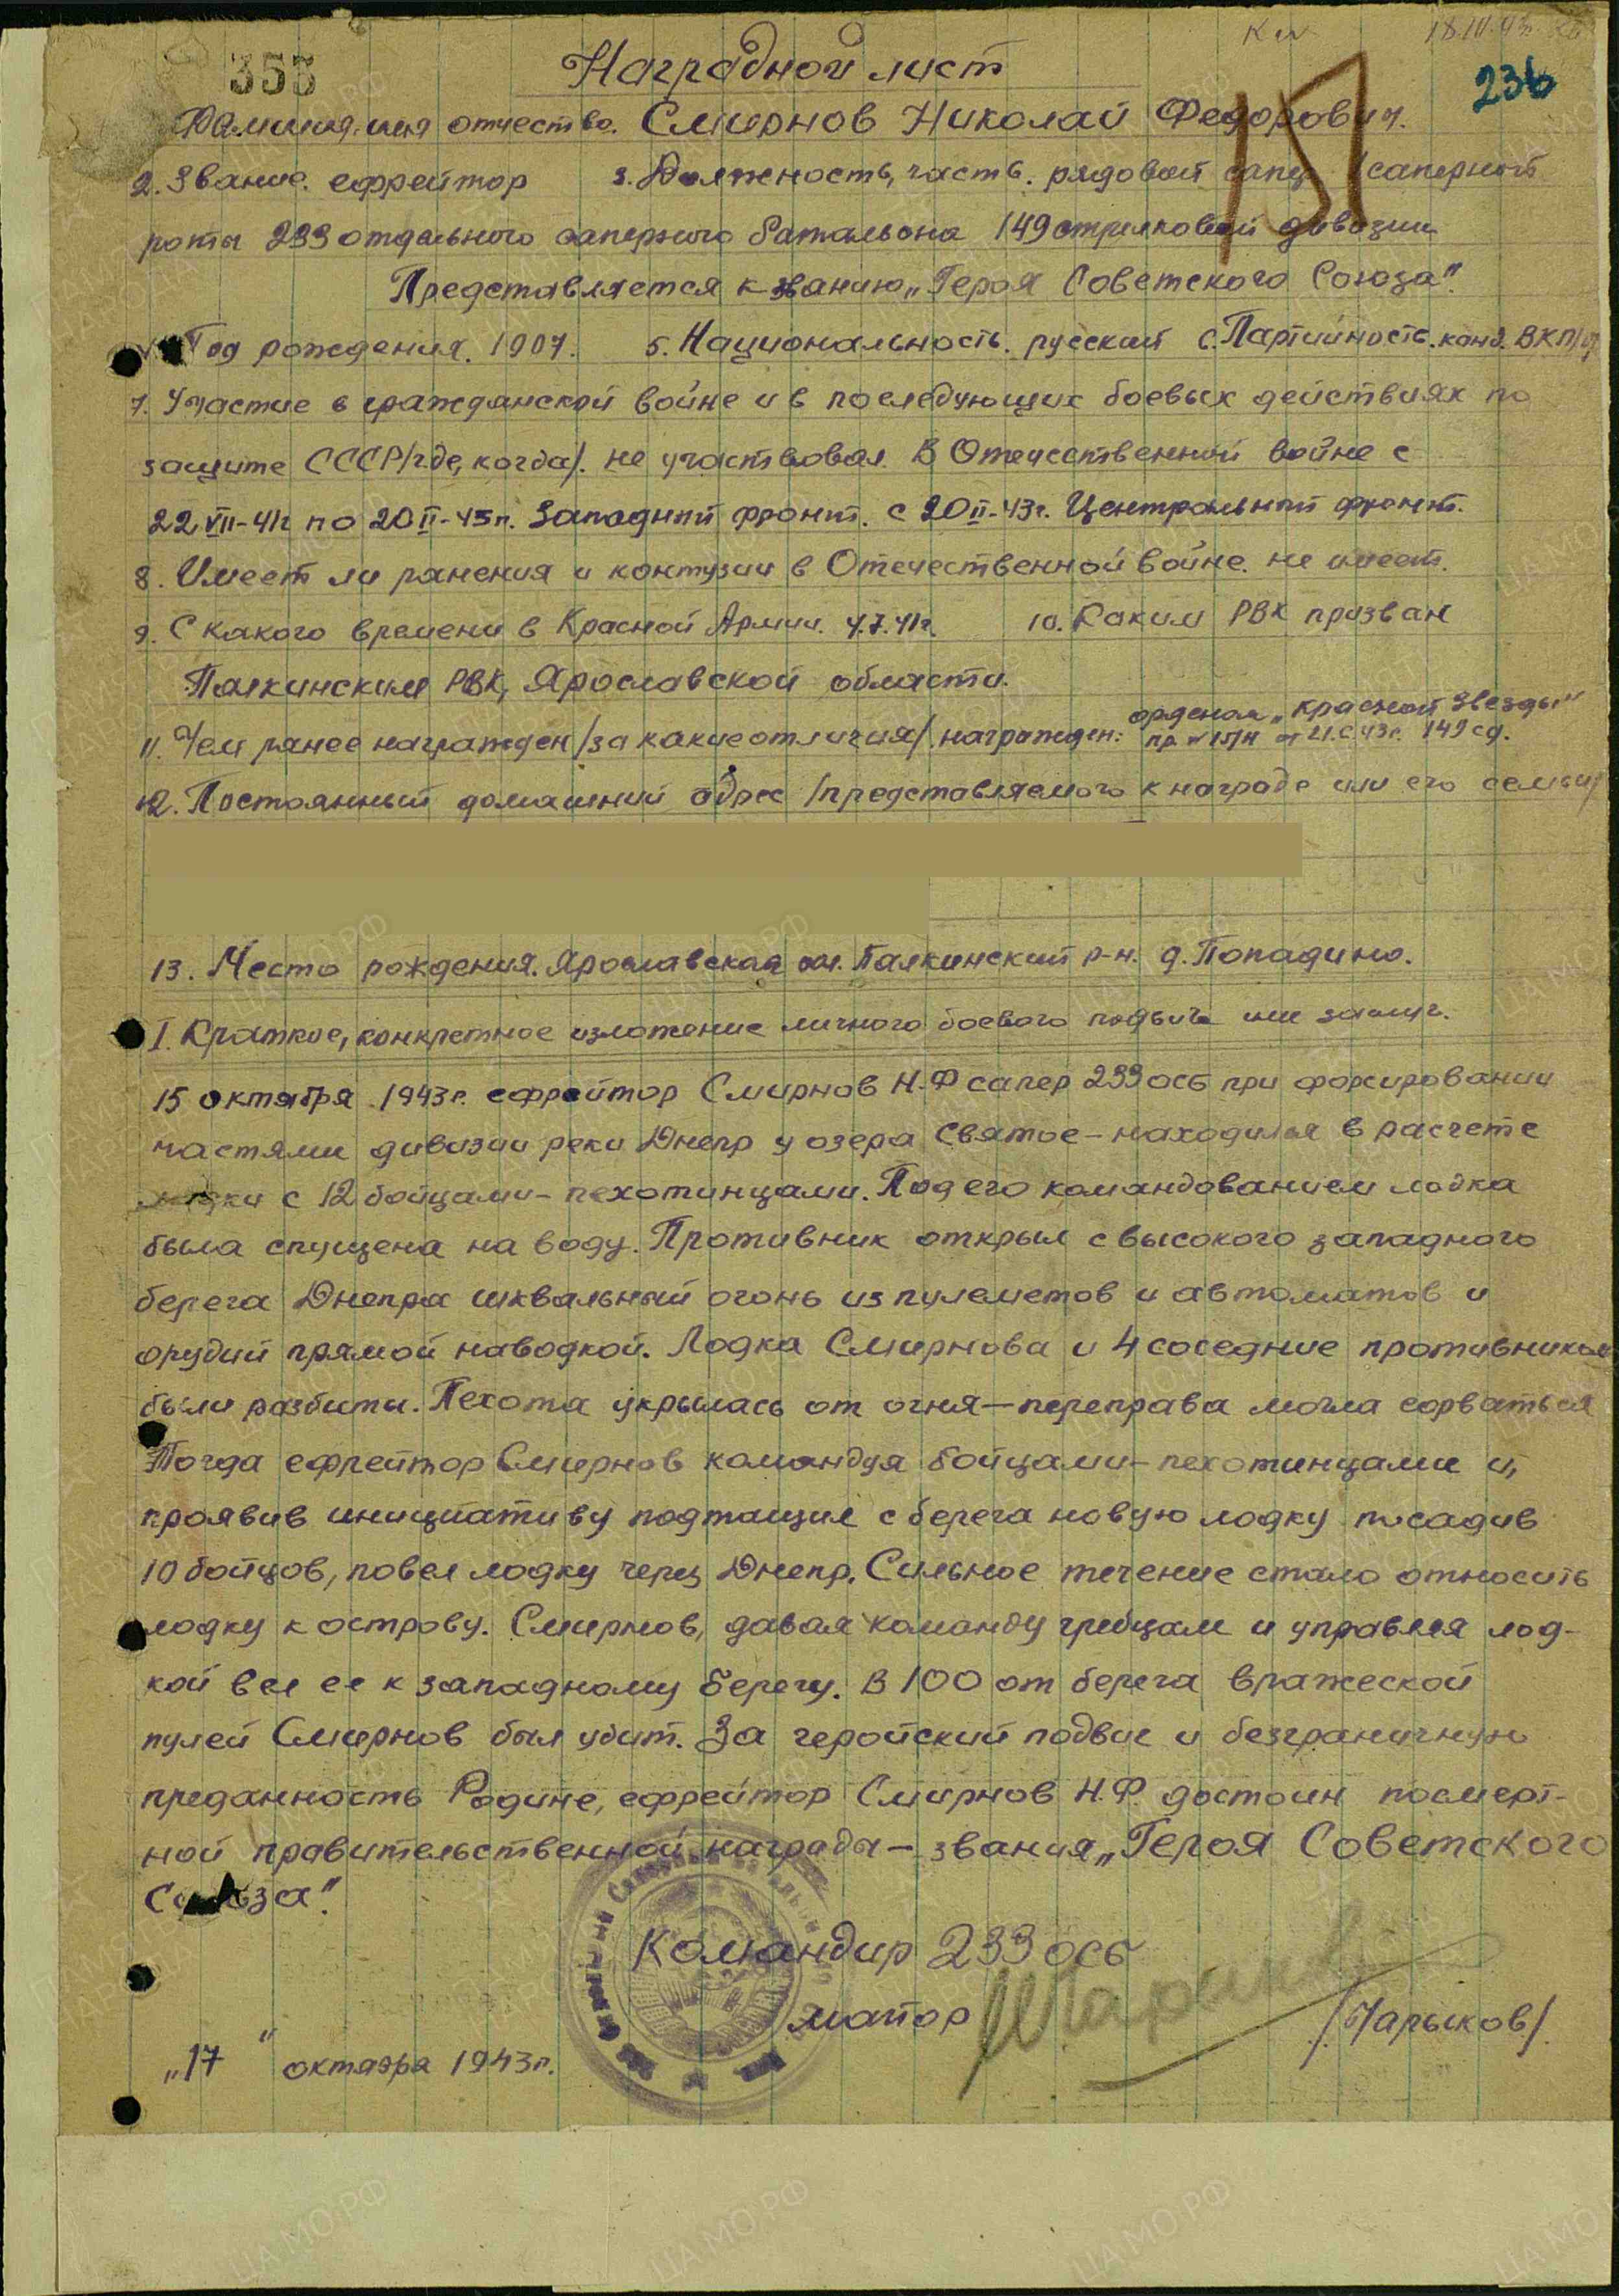 355
236
Наградной лист
Фамилия, имя отчество. Смирнов Николай Федорович.
2. Звание. ефрейтор 3. Должность, часть. рядовой сапер саперной
роты 233 отдельного саперного батальона 149 стрелковой дивизии
Представляется к званию „Героя Советского Союза".
Год рождения. 1907. 5. Национальность. русский 6. Партийность. канд. ВКП/б/
7. Участие в гражданской войне и в последующих боевых действиях по
защите СССР /где, когда/. не участвовал. В Отечественной войне с
22 VII-41г по 20 II-43г. Западный фронт. с 20 II-43г. Центральный фронт.
8. Имеет ли ранения и контузии в Отечественной войне. не имеет.
9. С какого времени в Красной Армии. 4.7.41г. 10. Каким РВК призван
Палкинским РВК, Ярославской области.
11. Чем ранее награжден /за какие отличия/. награжден: орденом „Красной Звезды"
пр. 149 сд.
12. Постоянный домашний адрес /представляемого к награде или его семьи/
13. Место рождения. Ярославская обл. Палкинский р-н. д. Попадино.
I. Краткое, конкретное изложение личного боевого подвига или заслуг.
15 октября 1943г. ефрейтор Смирнов Н.Ф сапер 233 осб при форсировании
частями дивизии реки Днепр у озера Святое – находился в расчете
лодки с 12 бойцами – пехотинцами. Под его командованием лодка
была спущена на воду. Противник открыл с высокого западного
берега Днепра шквальный огонь из пулеметов и автоматов и
орудий прямой наводкой. Лодка Смирнова и 4 соседние противником
были разбиты. Пехота укрылась от огня – переправа могла сорваться
Тогда ефрейтор Смирнов командуя бойцами – пехотинцами и,
проявив инициативу подтащил с берега новую лодку посадив
10 бойцов, повел лодку через Днепр. Сильное течение стало относить
лодку к острову. Смирнов, давая команду гребцам и управляя лод-
кой вел ее к западному берегу. В 100 от берега вражеской
пулей Смирнов был убит. За геройский подвиг и безграничную
преданность Родине, ефрейтор Смирнов Н.Ф. достоин посмерт-
ной правительственной награды – звания „Героя Советского
Союза".
Командир 233 осб
майор /Чарыков/.
„17" октября 1943г.